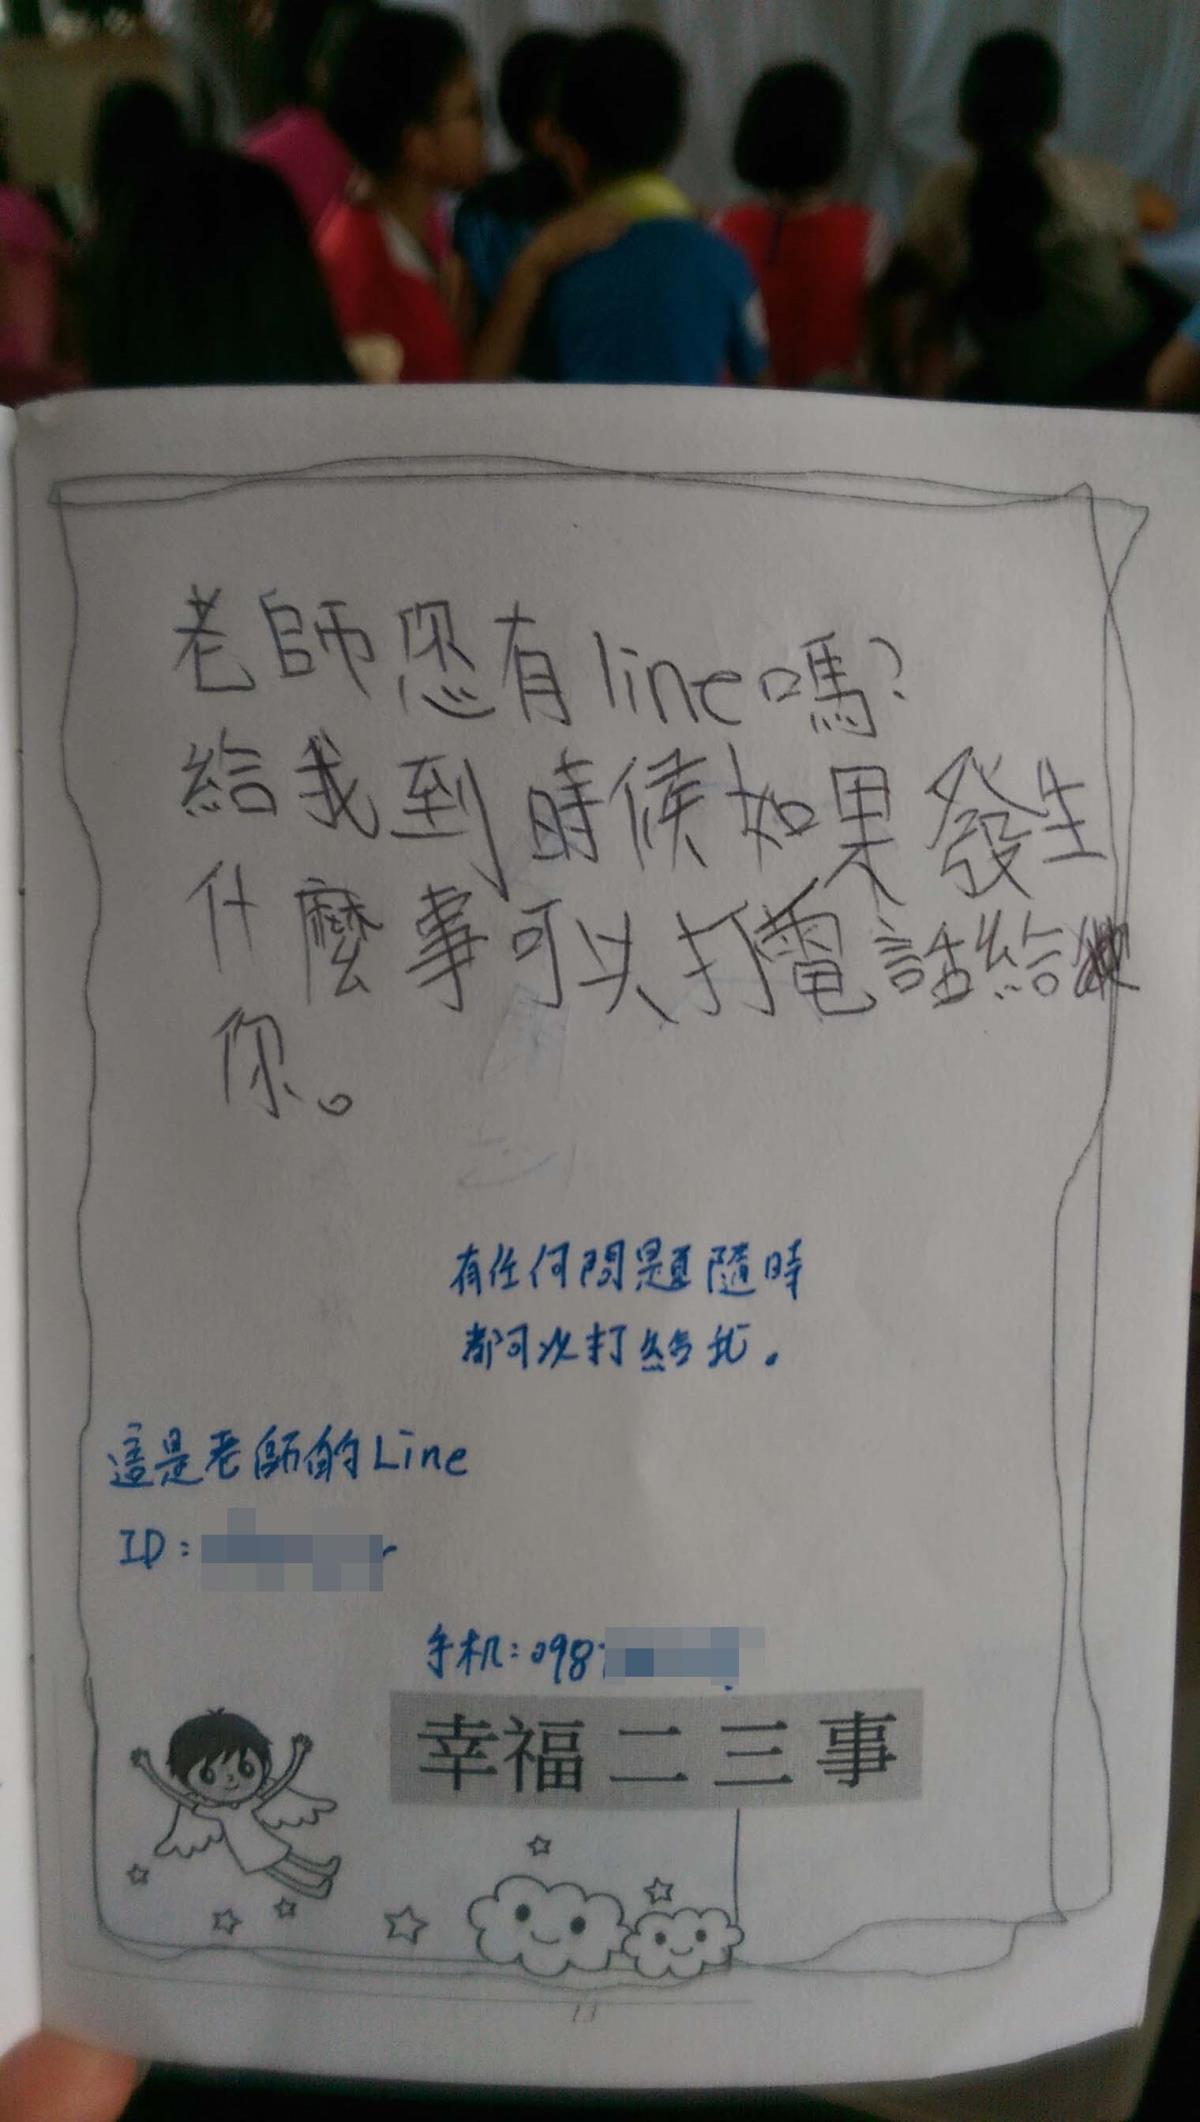 老師您有line嗎?
給我到時候如果發生
什麼事可以打電話給
你。
有任何問題隨時
都可以打給我。
這是老師的Line
ID:
手机:098
幸福二三事
13